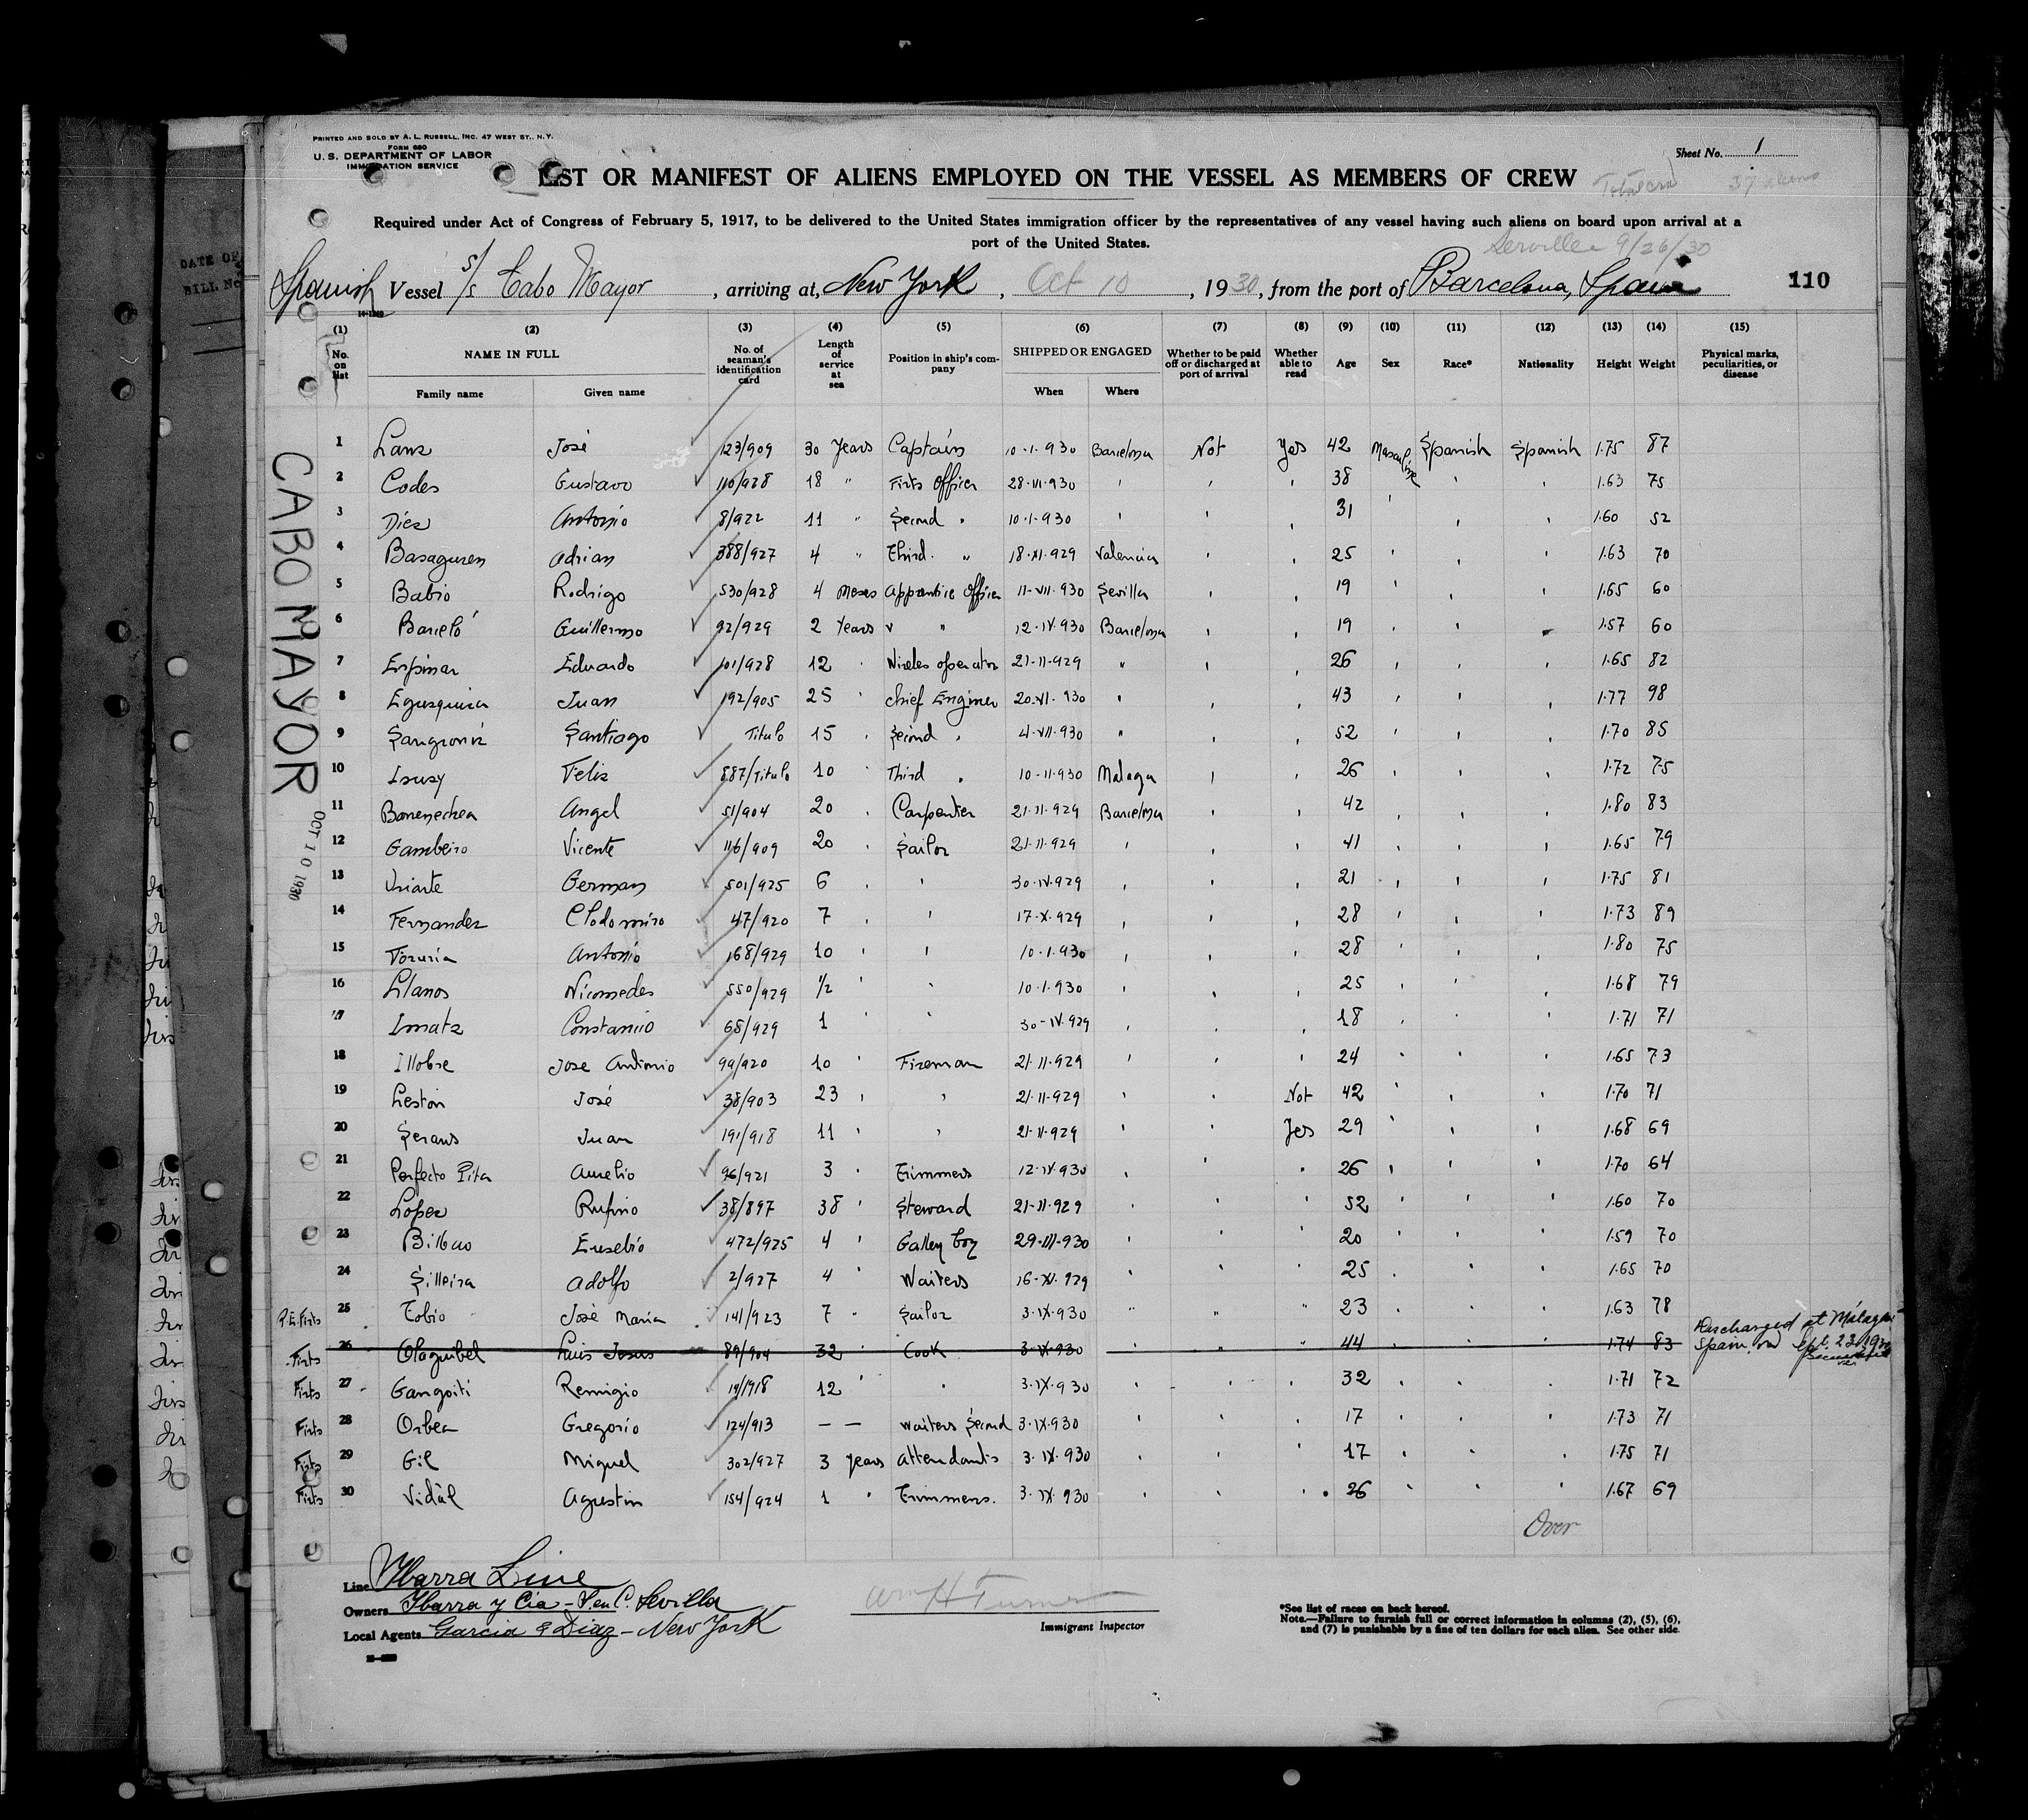 PRINTED AND SOLD BY A. L. RUSSELL, INC. 47 WEST ST., N.Y.
FORM 680
U. S. DEPARTMENT OF LABOR
IMMIGRATION SERVICE
Sheet No. 1
LIST OR MANIFEST OF ALIENS EMPLOYED ON THE VESSEL AS MEMBERS OF CREW
Required under Act of Congress of February 5, 1917, to be delivered to the United States immigration officer by the representatives of any vessel having such aliens on board upon arrival at a
port of the United States.
9/26/30
Spanish Vessel s/s Cabo Mayor, arriving at, New York, Oct 10, 1930, from the port of Barcelona, Spain 110
(1) (2) (3) (4) (5) (6) (7) (8) (9) (10) (11) (12) (13) (14) (15)
No. on list NAME IN FULL No. of seaman's identification card Length of service at sea Position in ship's company SHIPPED OR ENGAGED Whether to be paid off or discharged at port of arrival Whether able to read Age Sex Race* Nationality Height Weight Physical marks, peculiarities, or disease
Family name Given name When Where
1 Lanz José 123/909 30 Years Captain 10-1-930 Barcelona Not Yes 42 Masculine Spanish Spanish 1.75 87
2 Codes Gustavo 116/928 18 " Firts Officer 28-VI-930 ' ' ' 38 ' ' 1.63 75
3 Diez Antonio 8/922 11 " Second " 10-1-930 ' ' ' 31 ' ' ' 1.60 52
4 Basaguren Adrian 388/927 4 " Third. " 18-XI-929 Valencia ' ' 25 ' ' ' 1.63 70
5 Babio Rodrigo 530/928 4 meses Apprentice Officer 11-VII-930 Sevilla ' ' 19 ' ' ' 1.65 60
6 Barceló Guillermo 92/929 2 Years " " 12-IV-930 Barcelona ' ' 19 ' ' ' 1.57 60
7 Espinar Eduardo 101/928 12 ' Wireles operator 21-11-929 " ' ' 26 ' ' ' 1.65 82
8 Egusquiza Juan 192/905 25 ' Chief Enginer 20-VI-930 " ' ' 43 ' ' ' 1.77 98
9 Sangroniz Santiago Titulo 15 ' Second ' 4-VII-930 " ' ' 52 ' ' ' 1.70 85
10 Isusy Felix 887/Titulo 10 ' Third ' 10-11-930 Malaga ' ' 26 ' ' ' 1.72 75
11 Barrenechea Angel 51/904 20 ' Carpenter 21-11-929 Barcelona ' ' 42 ' ' ' 1.80 83
12 Gambeiro Vicente 116/909 20 ' Sailor 21-11-929 ' ' ' 41 ' ' ' 1.65 79
13 Uriarte German 501/925 6 ' ' 30-IV-929 ' ' ' 21 ' ' ' 1.75 81
14 Fernandez Clodomiro 47/920 7 ' ' 17-X-929 ' ' ' 28 ' ' ' 1.73 89
15 Antonio 168/929 10 ' ' 10-1-930 ' ' ' 28 ' ' ' 1.80 75
16 Llanos Nicomedes 550/929 1/2 ' ' 10-1-930 ' ' ' 25 ' ' ' 1.68 79
17 Imatz Constancio 68/929 1 ' ' 30-IV-929 ' ' ' 18 ' ' ' 1.71 71
18 Illobre Jose Antonio 99/920 10 ' Fireman 21-11-929 ' ' ' 24 ' ' ' 1.65 73
19 Leston José 38/903 23 ' ' 21-11-929 ' ' Not 42 ' ' ' 1.70 71
20 Juan 191/918 11 ' ' 21-11-929 ' ' Yes 29 ' ' ' 1.68 69
21 Perfecto Pita Aurelio 96/921 3 ' Trimmers 12-IV-930 ' ' ' 26 ' ' ' 1.70 64
22 Lopez Rufino 38/897 38 ' Steward 21-11-929 ' ' ' 52 ' ' ' 1.60 70
23 Bilbao Eusebio 472/925 4 ' Galley boy 29-III-930 ' ' ' 20 ' ' ' 1.59 70
24 Silleira Adolfo 2/927 4 ' Waiters 16-XI-929 ' ' ' 25 ' ' ' 1.65 70
25 Tobio José Maria 141/923 7 ' Sailor 3-IX-930 " " " 23 ' ' ' 1.63 78
Firts 26 Olaguibel Luis Jesus 89/904 32 ' Cook 3-IX-930 44 ' ' ' 1.74 83 Discharged at Málaga Spain, on Sept. 23, 1930
Firts 27 Gangoiti Remigio 19/918 12 ' ' 3-IX-930 ' ' ' 32 ' ' ' 1.71 72
Firts 28 Orbea Gregorio 124/913 — — Waiters Second 3-IX-930 ' ' ' 17 ' ' ' 1.73 71
Firts 29 Gil Miguel 302/927 3 years Attendants 3-IX-930 ' ' ' 17 ' ' ' 1.75 71
Firts 30 Vidal Agustin 154/924 1 ' Trimmers. 3-IX-930 ' ' ' 26 ' ' ' 1.67 69
Over
CABO MAYOR
OCT 10 1930
Line Ybarra Line
Owners Ybarra y Cia - S. en C. Sevilla
Local Agents Garcia & Diaz - New York
Wm H Turner
Immigrant Inspector
*See list of races on back hereof.
Note.—Failure to furnish full or correct information in columns (2), (5), (6),
and (7) is punishable by a fine of ten dollars for each alien. See other side.
DATE OF
BILL No